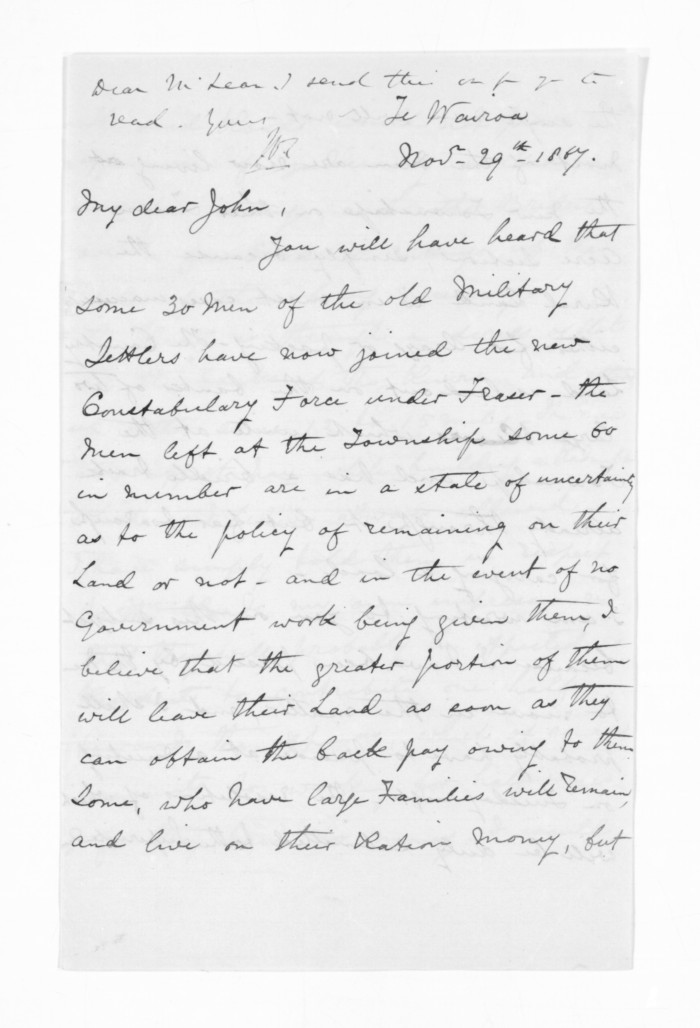 Dear McLean I send this on for you to
read. Yours
Te Wairoa
Novr. 29th 1867.
My dear John,
You will have heard that
some 30 Men of the old Military
Settlers have now joined the new
Constabulary Force under Fraser - the
Men left at the Township some 60
in number are in a state of uncertainty
as to the policy of remaining on their
Land or not - and in the event of no
Government work being given them, I
believe that the greater portion of them
will leave their Land as soon as they
can obtain the back pay owing to them
Some, who have large Families will remain,
and live on their Ration Money, but